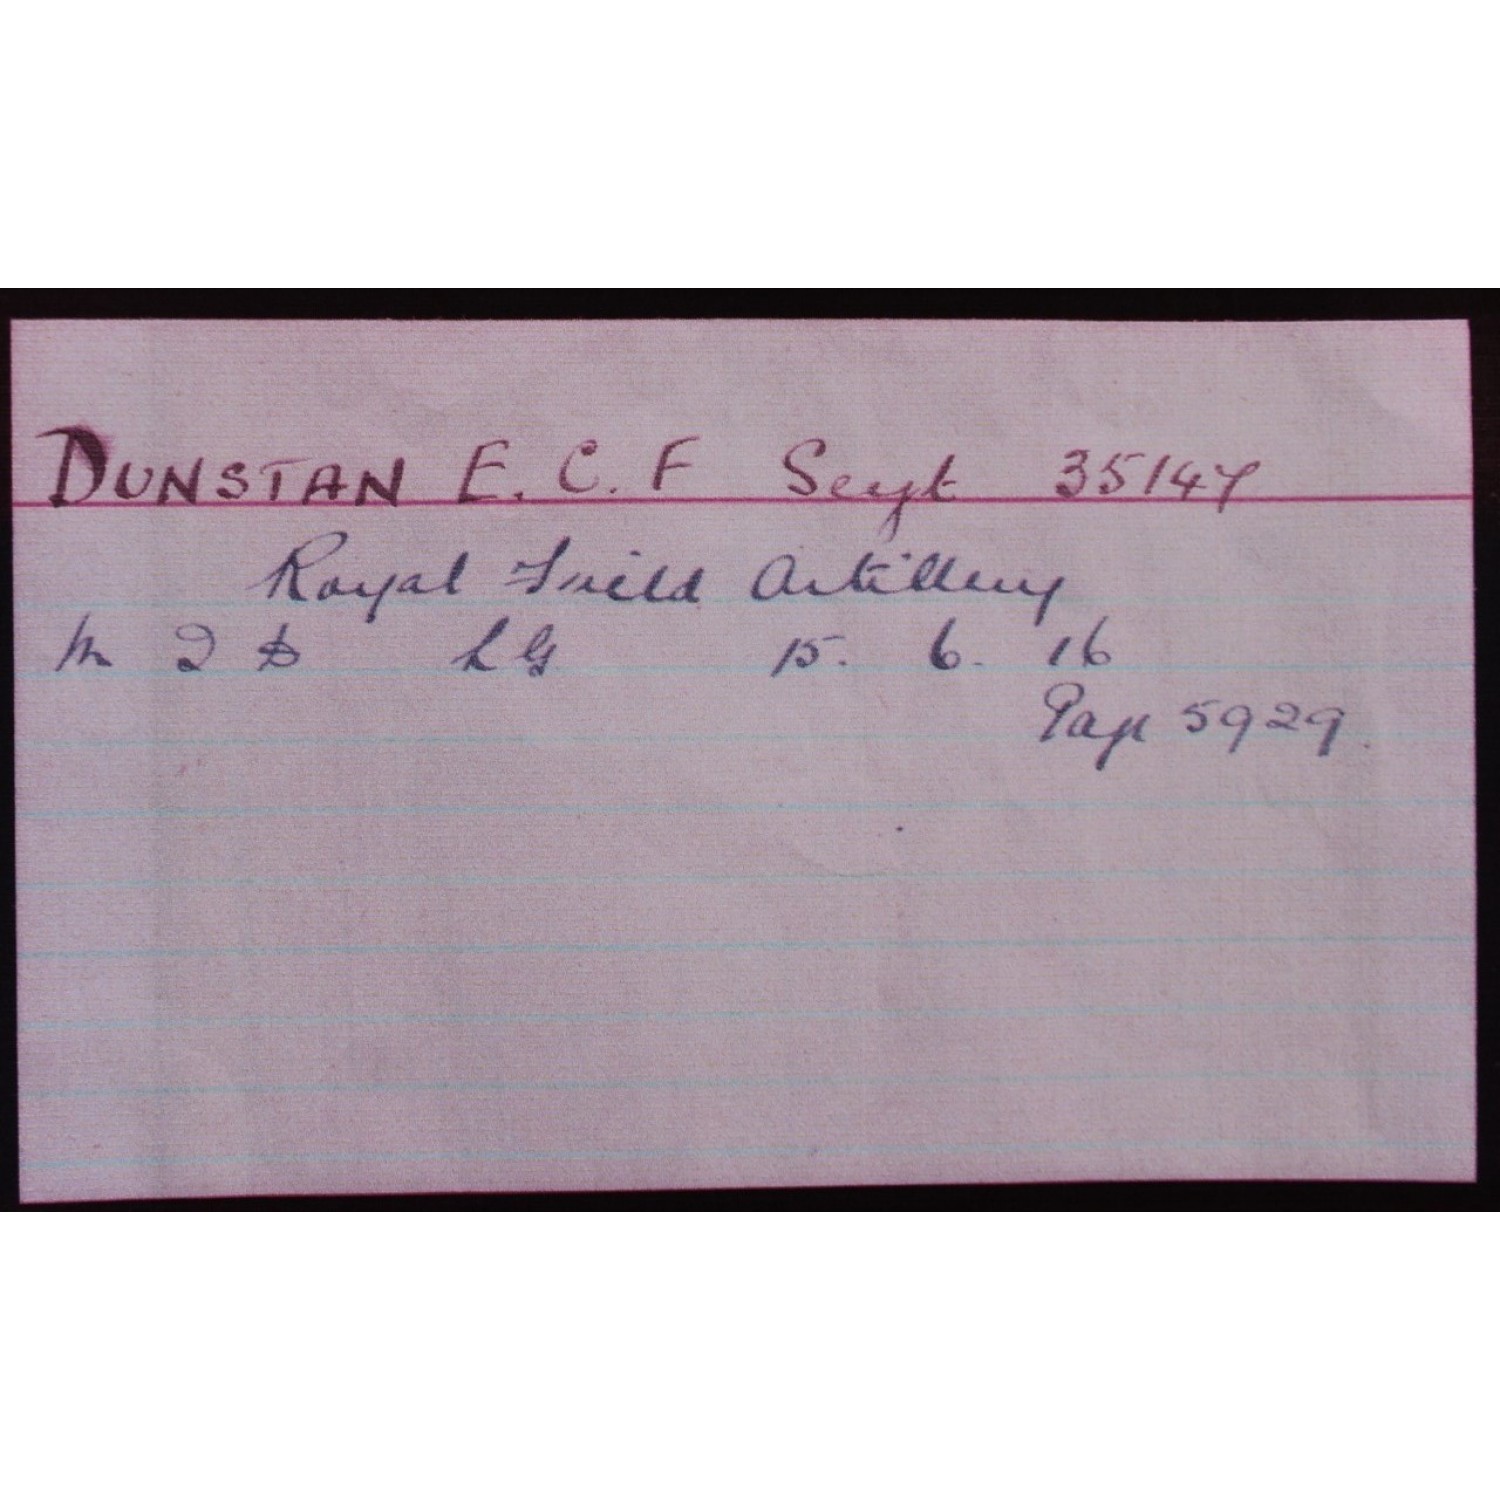 DUNSTAN E. C. F Sergt 35147
Royal Field Artillery
M I D LG 15. 6. 16
Page 5929.